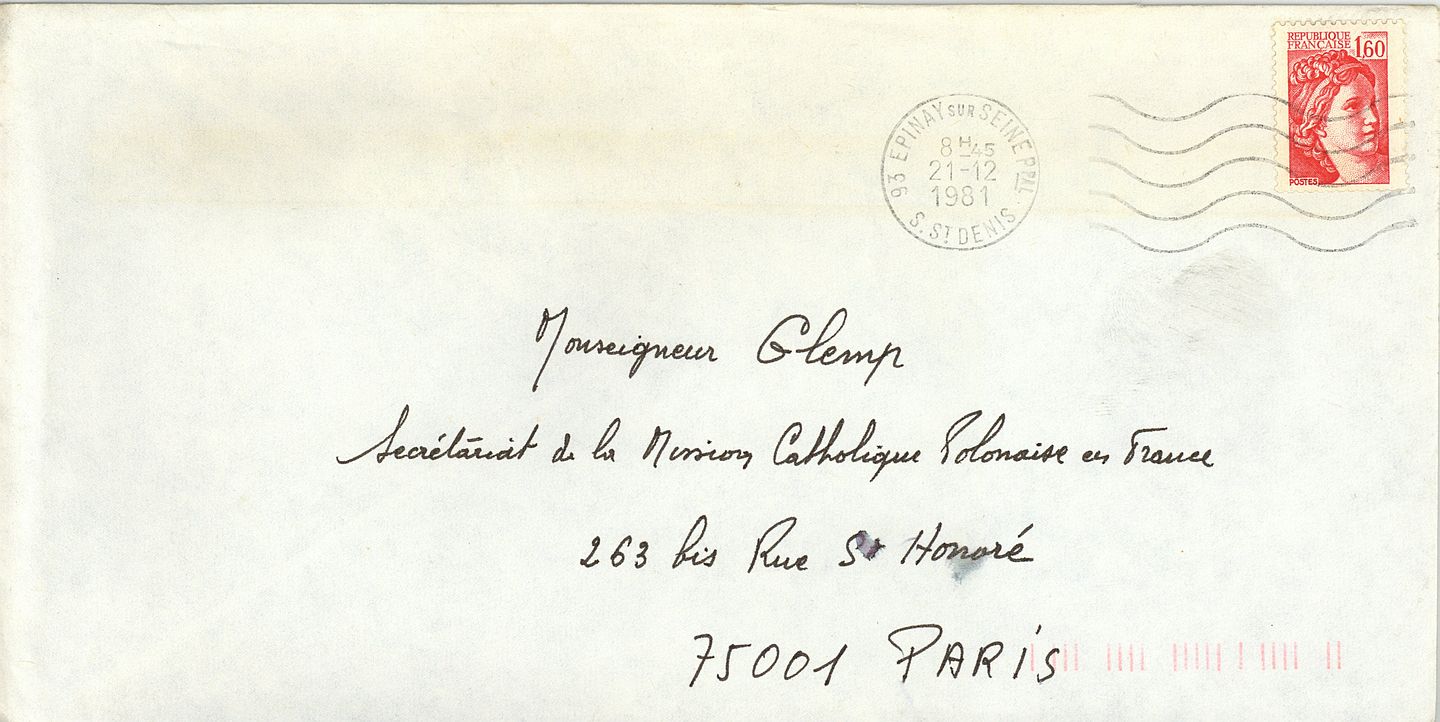 REPUBLIQUE
FRANCAISE 1,60
POSTES
93 EPINAY SUR SEINE PPAL
8H45
21-12
1981
S. ST DENIS
Monseigneur Glemp
Secrétariat de la Mission Catholique Polonaise en France
263 bis Rue St Honoré
75001 PARIS